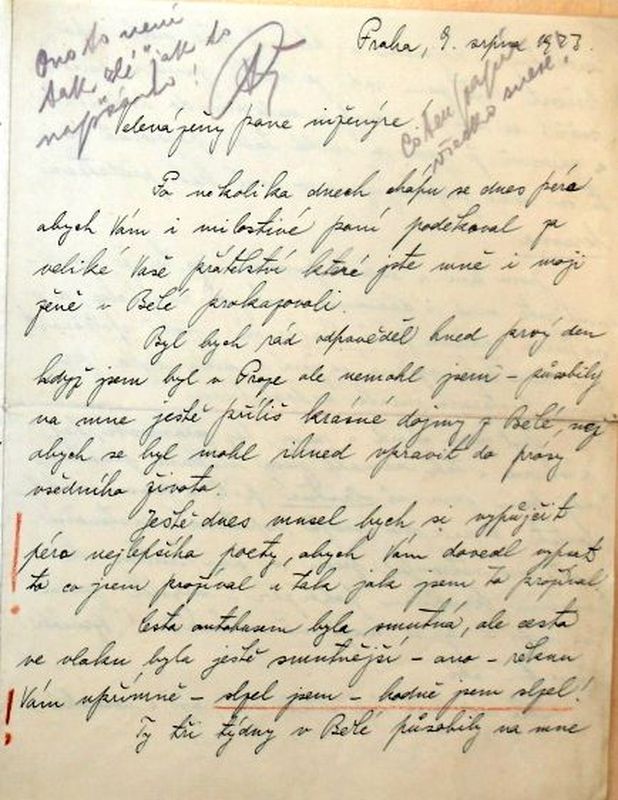 Ono to není
tak "zlé" jak to
napsáno!
Praha, 9. srpna 19
Co ten papír
všecko snese!
Velevážený pane inženýre!
Po nekolika dnech chápu se dnes péra
abych Vám i milostivé paní podekoval za
veliké Vaše přátelství které jste mně i moji
ženě v Bělé prokazovali.
Byl bych rád odpověděl hned prvý den
když jsem byl v Praze ale nemohl jsem – působily
na mne ještě příliš krásné dojmy z Bělé, než
abych se byl mohl ihned vpravit do prósy
všedního života.
Ještě dnes musel bych si vypůjčit
péro nejlepšího poety, abych Vám dovedl vypsat
to co jsem prožíval a tak jak jsem to prožíval.
Cesta autobusem byla smutná, ale cesta
ve vlaku byla ještě smutnější – ano – řeknu
Vám upřímně – slzel jsem – hodně jsem slzel!
Ty tři týdny v Bělé působily na mne